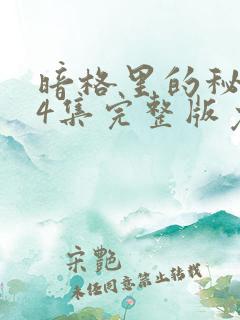 暗格里的秘
4集完整版
宋艷
未任同意禁止转载